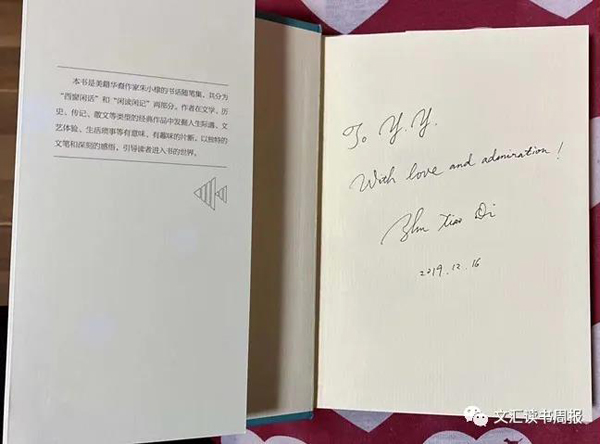 本书是美籍华裔作家朱小棣的书话随笔集，共分为
“西窗闲话”和“闲读闲记”两部分。作者在文学、历
史、传记、散文等类型的经典作品中发掘人生际遇、文
艺体验、生活琐事等有意味、有趣味的片断，以独特的
文笔和深刻的感悟，引导读者进入书的世界。
To Y.Y.
With love and admiration!
Zhu Xiao Di
2019.12.16
文汇读书周报